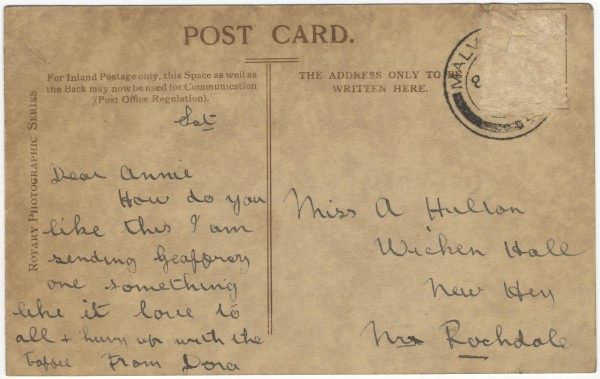 POST CARD.
For Inland Postage only, this Space as well as
the Back may now be used for Communication
(Post Office Regulation).
THE ADDRESS ONLY TO
WRITTEN HERE.
ROTARY PHOTOGRAPHIC SERIES
MALV
8
Sat
Dear Annie
How do you
like this I am
sending Geaffrey
one something
like it love to
all + hurry up with the
toffee From Dora
Miss A Hulton
Wicken Hall
New Hey
Nr Rochdale